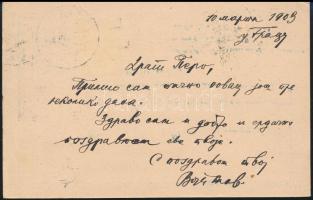 10 марта 1903
у Грацу
Драги Перо,
Примио сам оно новац још пре
неколико дана.
Здраво сам и добро и срдачно
поздрављам све твоје.
С поздравом твој